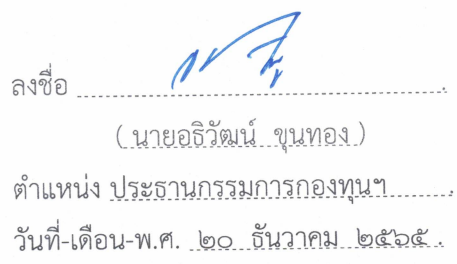 ลงชื่อ
( นายอธิวัฒน์ ขุนทอง )
ตำแหน่ง ประธานกรรมการกองทุนฯ
วันที่-เดือน-พ.ศ. ๒๐ ธันวาคม ๒๕๖๕